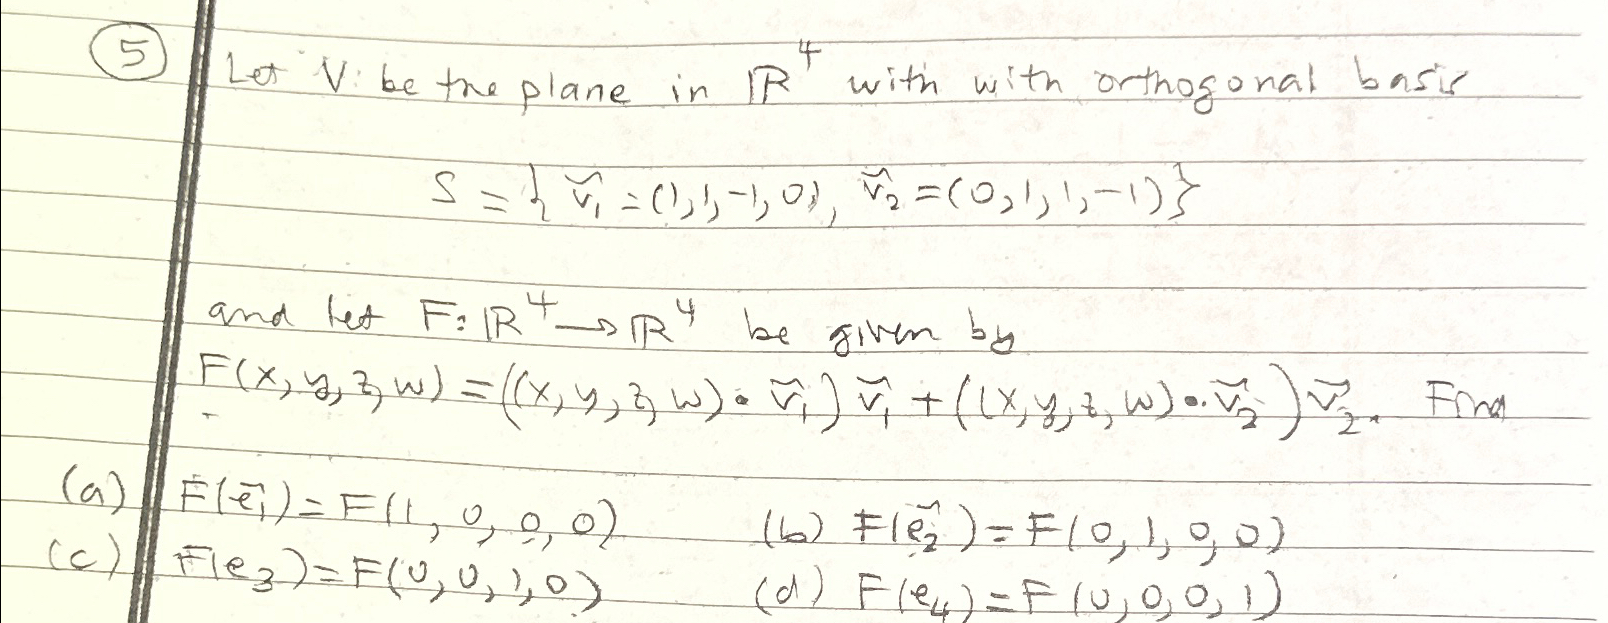 (5) Let V: be the plane in ℝ⁴ with with orthogonal basis
S = { v⃗₁ = (1,1,-1,0), v⃗₂ = (0,1,1,-1)}
and let F: ℝ⁴ → ℝ⁴ be given by
F(x,y,z,w) = ((x,y,z,w)•v⃗₁) v⃗₁ + ((x,y,z,w)•v⃗₂) v⃗₂. Find
(a) F(e⃗₁) = F(1,0,0,0) (b) F(e⃗₂) = F(0,1,0,0)
(c) F(e₃) = F(0,0,1,0) (d) F(e₄) = F(0,0,0,1)